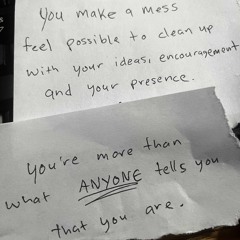 You make a mess
feel possible to clean up
with your ideas, encouragement
and your presence.
You're more than
what ANYONE tells you
that you are.